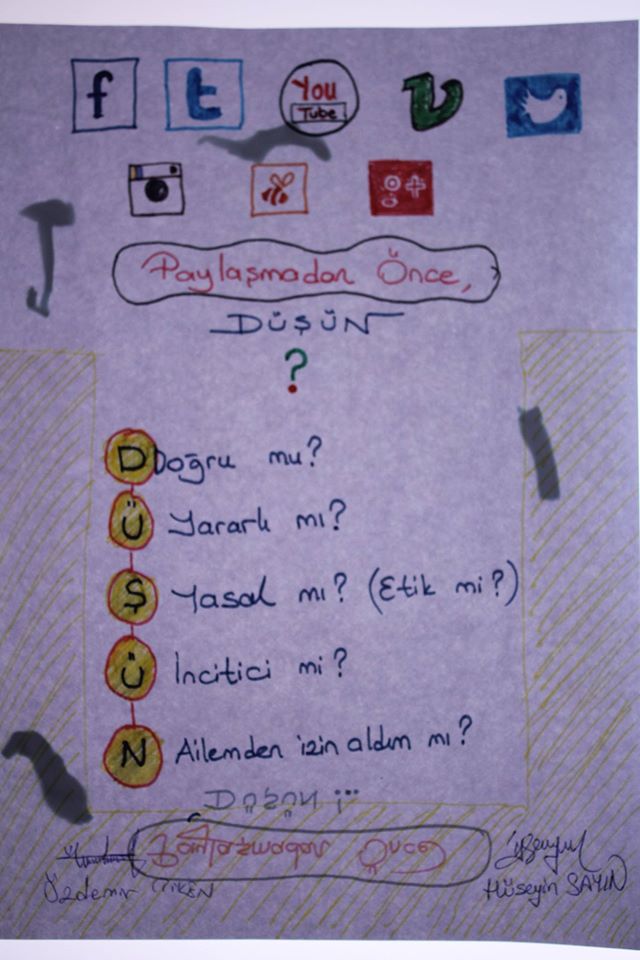 f t You Tube
g+
Paylaşmadan Önce,
DÜŞÜN
?
D Doğru mu?
Ü Yararlı mı?
Ş Yasal mı? (Etik mi?)
Ü İncitici mi?
N Ailemden izin aldın mı?
Özdemir
Hüseyin SAYIN